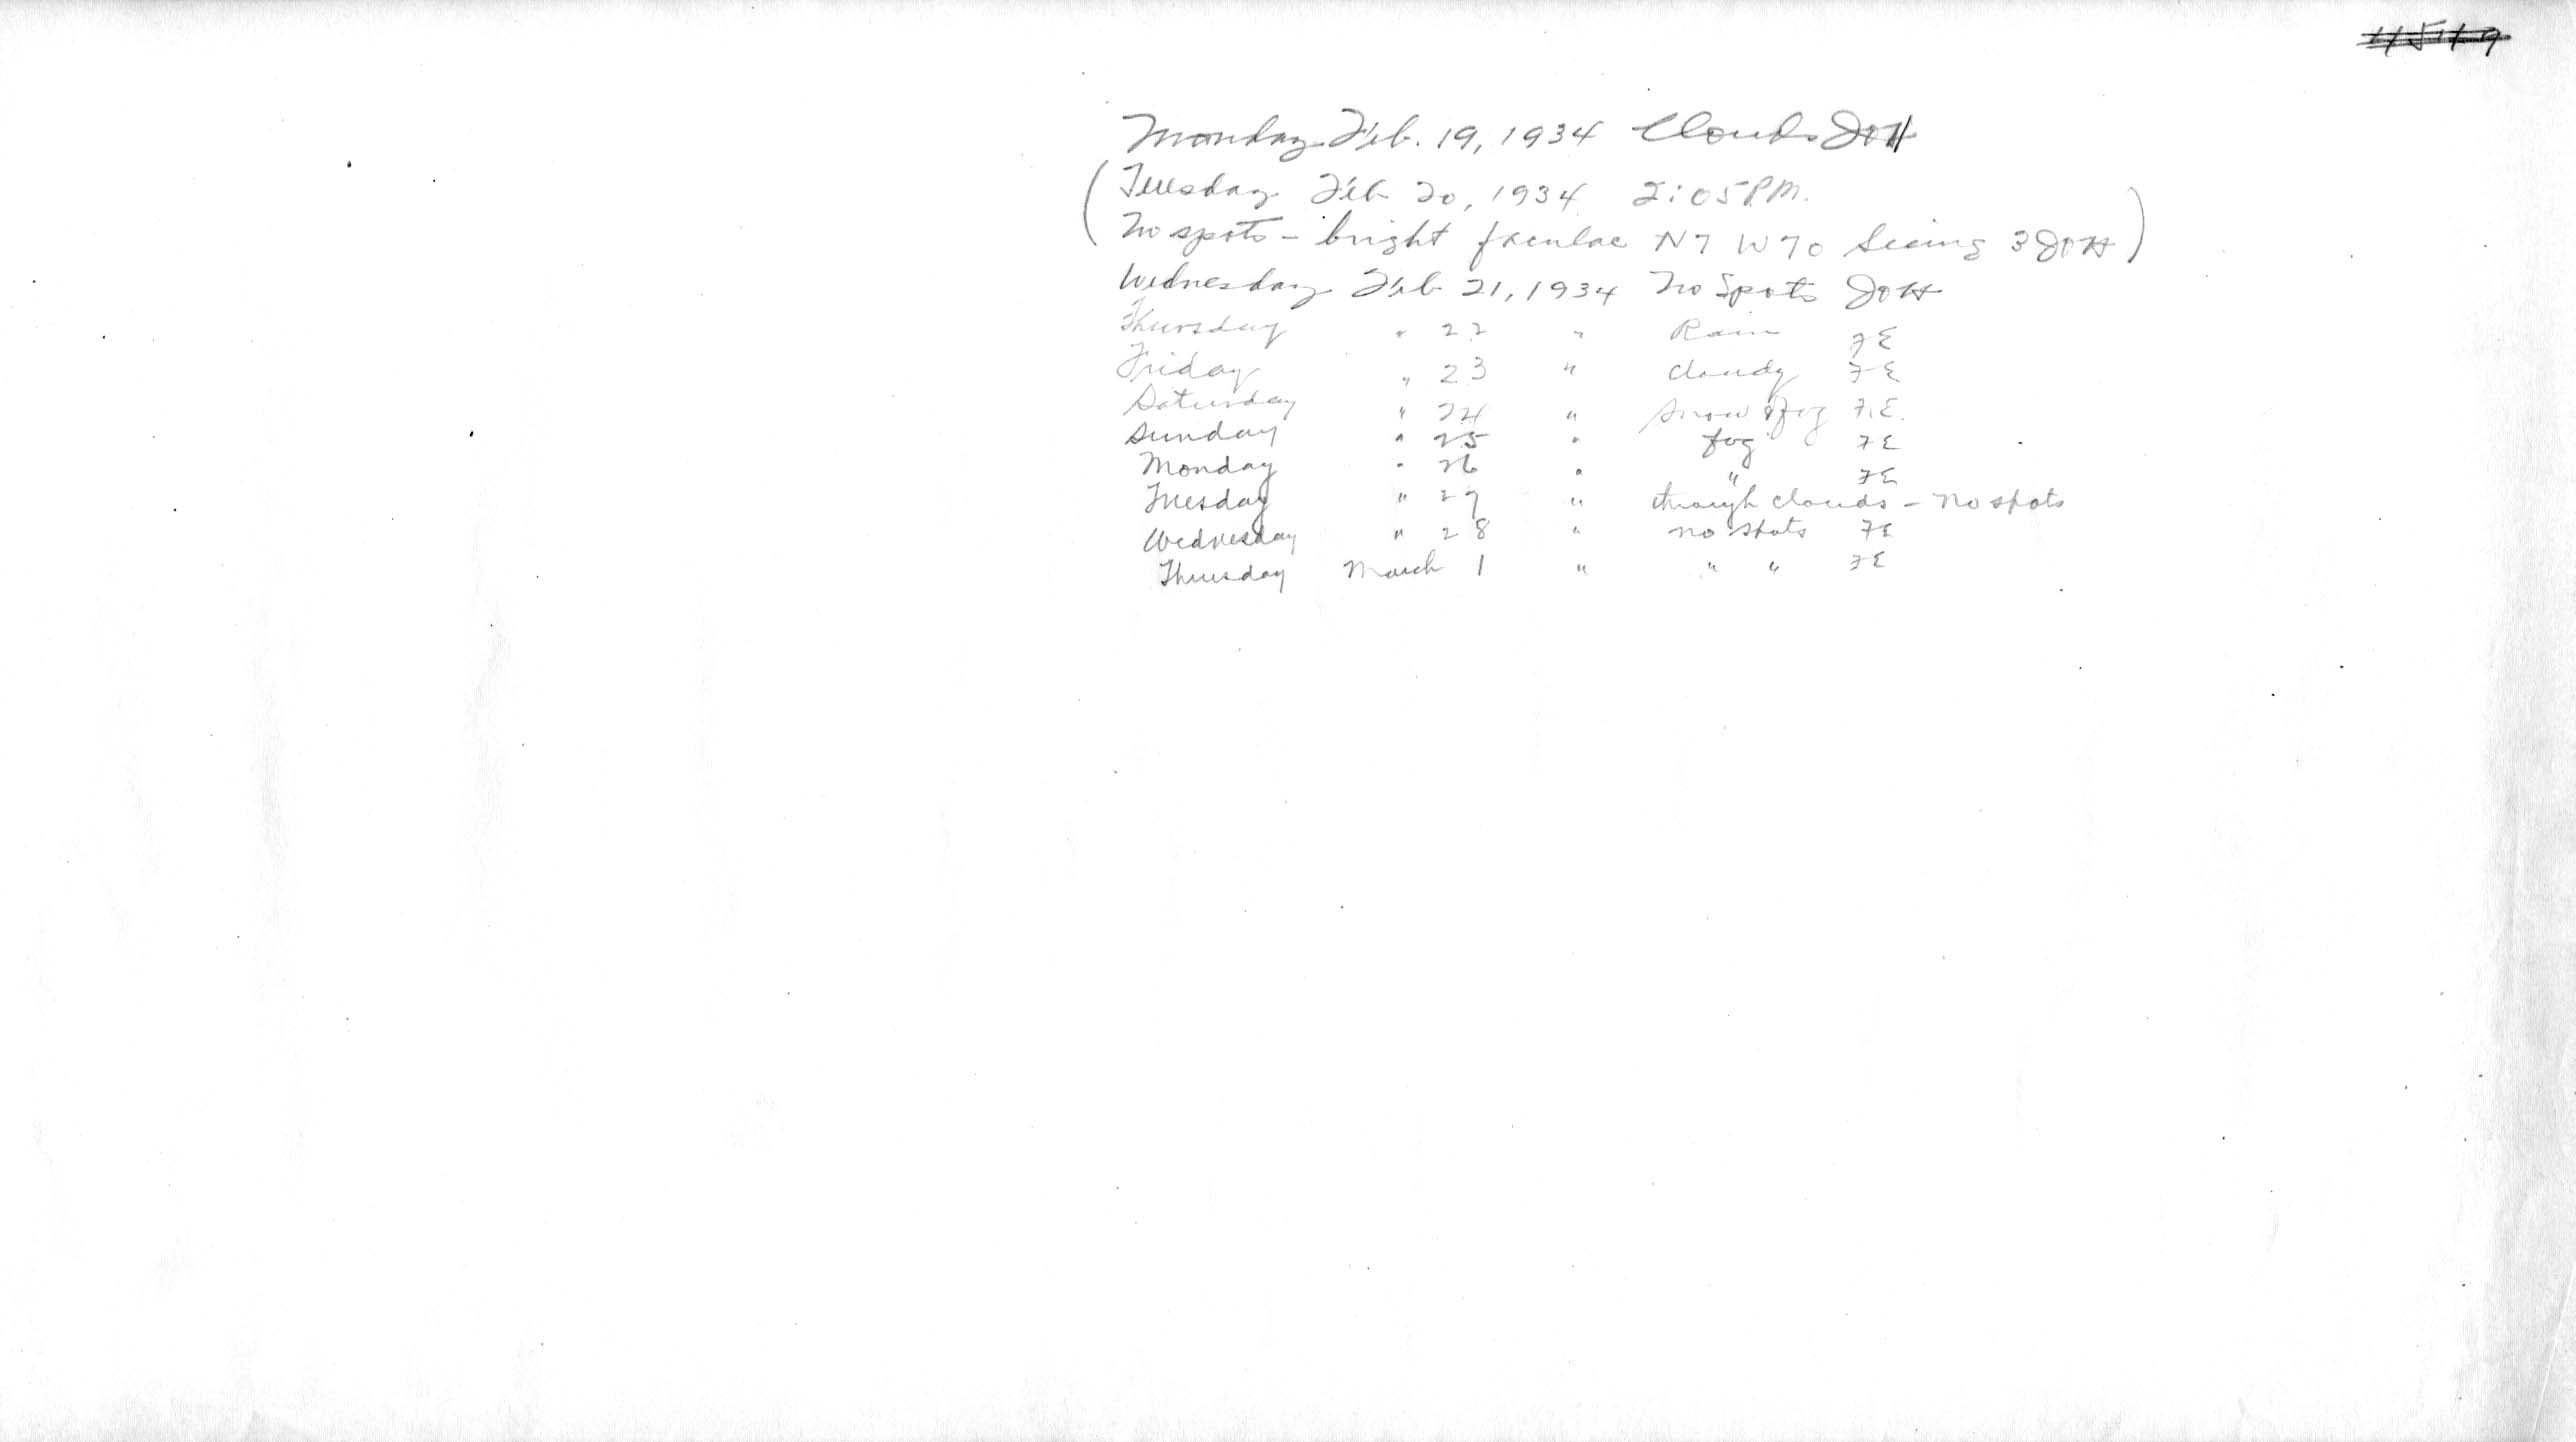 Monday Feb. 19, 1934 Clouds JOH
(Tuesday Feb 20, 1934 2:05 P.M.
No spots – bright faculae N7 W70 Seeing 3 JOH)
Wednesday Feb 21, 1934 No Spots JOH
Thursday " 22 " Rain FE
Friday " 23 " cloudy FE
Saturday " 24 " snow & fog F.E.
Sunday " 25 " fog FE
Monday " 26 " " FE
Tuesday " 27 " through clouds – no spots
Wednesday " 28 " no spots FE
Thursday March 1 " " " FE